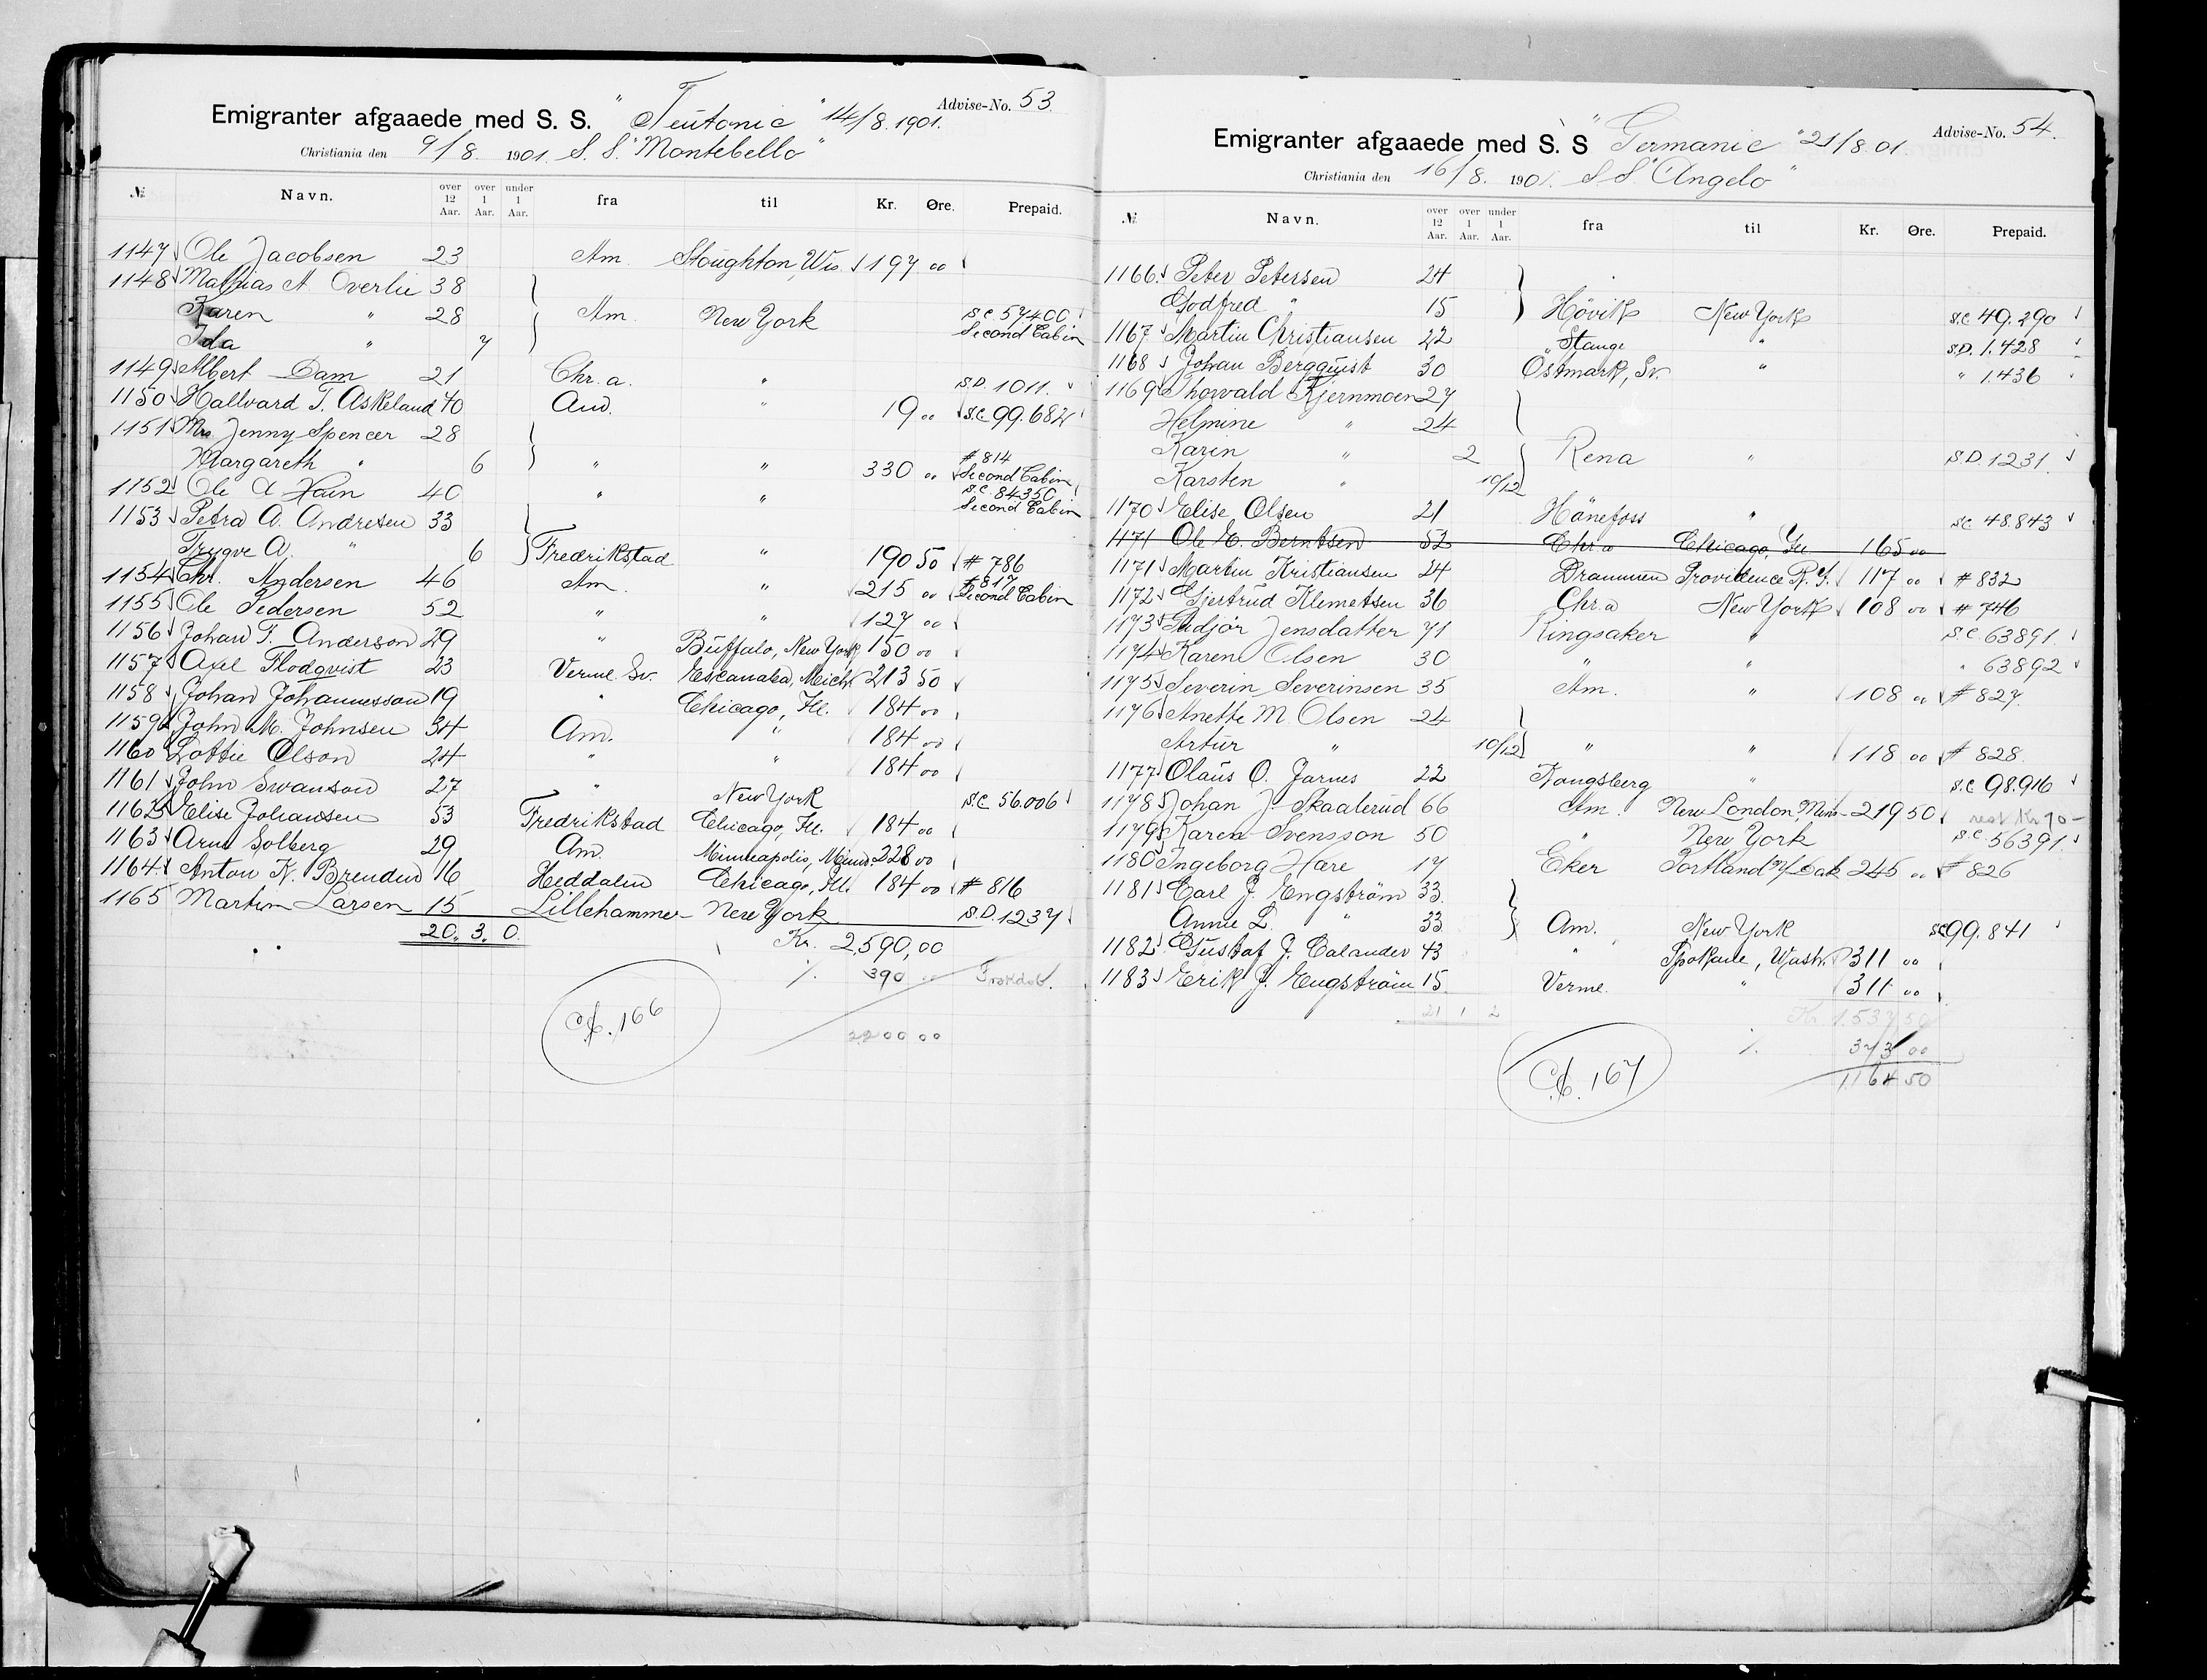 Advise-No. 53
Emigranter afgaaede med S. S. "Teutonic" 14/8.1901.
Christiania den 9/8. 1901. S. S. "Montebello"
№ Navn. over 12 Aar. over 1 Aar. under 1 Aar. fra til Kr. Øre. Prepaid.
1147 Ole Jacobsen 23 Am. Stoughton, Wis. 197 00
1148 Mathias A. Overlie 38
Karen " 28 Am. New York S.C. 57400
Ida " 7 Second Cabin
1149 Albert Dam 21 Chr.a. " S.D. 1011.
1150 Hallvard T. Askeland 40 Am. " 19 00 S.C. 99.682
1151 Mrs Jenny Spencer 28
Margareth " 6 " " 330 00 # 814 Second Cabin
1152 Ole A Hain 40 " " S.C. 84350 Second Cabin
1153 Petra A. Andresen 33
Trygve A. " 6 Fredrikstad " 190 50 # 786
1154 Chr. Andersen 46 Am. " 215 00 # 817 Second Cabin
1155 Ole Pedersen 52 " " 127 00
1156 Johan T. Anderson 29 " Buffalo, New York 150 00
1157 Axel Flodqvist 23 Verml. Sv. Escanaba, Mich. 213 50
1158 Johan Johannesson 19 " Chicago, Ill. 184 00
1159 John M. Johnsen 34 Am. " 184 00
1160 Lottie Olson 24 " " 184 00
1161 John Swanson 27 " New York S.C. 56.006
1162 Elise Johansen 53 Fredrikstad Chicago, Ill. 184 00
1163 Arne Solberg 29 Am. Minneapolis, Minn. 228 00
1164 Anton K. Brenden 16 Heddalen Chicago, Ill. 184 00 # 816
1165 Martin Larsen 15 Lillehammer New York S.D. 1237
20. 3. 0. Kr. 2,590,00
% 390 00
2200 00
166
Advise-No. 54.
Emigranter afgaaede med S. S "Germanic" 21/8.01.
Christiania den 16/8. 1901. S S "Angelo"
№ Navn. over 12 Aar. over 1 Aar. under 1 Aar. fra til Kr. Øre. Prepaid.
1166. Peter Petersen 24
Godfred " 15 Hövik New York S.C. 49.290
1167 Martin Christiansen 22 Stange " S.D. 1.428
1168 Johan Bergquist 30 Östmark, Sv. " " 1.436
1169 Thorvald Kjernmoen 27
Helmine " 24
Karin " 2 Rena " S.D. 1231.
Karsten " 10/12
1170 Elise Olsen 21 Hönefoss " S.C. 48.843
1171 Ole E. Berntsen 52 Chr.a Chicago, Ill 165 00
1171 Martin Kristiansen 24 Drammen Providence R.I. 117 00 # 832
1172 Gjertrud Klemetsen 36 Chr.a New York 108 00 # 746
1173 Gudjör Jensdatter 71 Ringsaker " S.C. 63891.
1174 Karen Olsen 30 " " " 63892
1175 Severin Severinsen 35 Am. " 108 00 # 827.
1176 Anette M. Olsen 24
Artur " 10/12 " " 118 00 # 828.
1177 Olaus O. Jarnes 22 Kongsberg " S.C. 98.916
1178 Johan J. Skaalerud 66 Am. New London, Minn. 219 50 rest Kr 90-
1179 Karen Svensson 50 " New York S.C. 56391.
1180 Ingeborg Hare 17 Eker Portland N/Dak 245 00 # 826
1181 Carl J. Engström 33.
Annie L. " 33 Am. New York SC 99.841
1182 Gustaf J. Calander 43 " Spokane, Wash. 311 00
1183 Erik J. Engström 15. Verml. " 311 00
21 1 2 Kr. 1.537,50
% 373 00
1,164 50
167